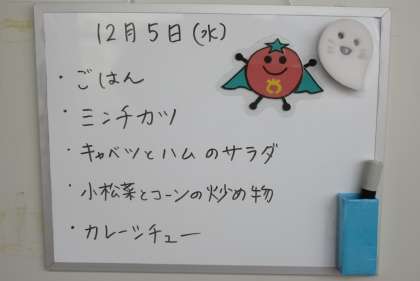 12月5日(水)
・ごはん
・ミンチカツ
・キャベツとハムのサラダ
・小松菜とコーンの炒め物
・カレーシチュー